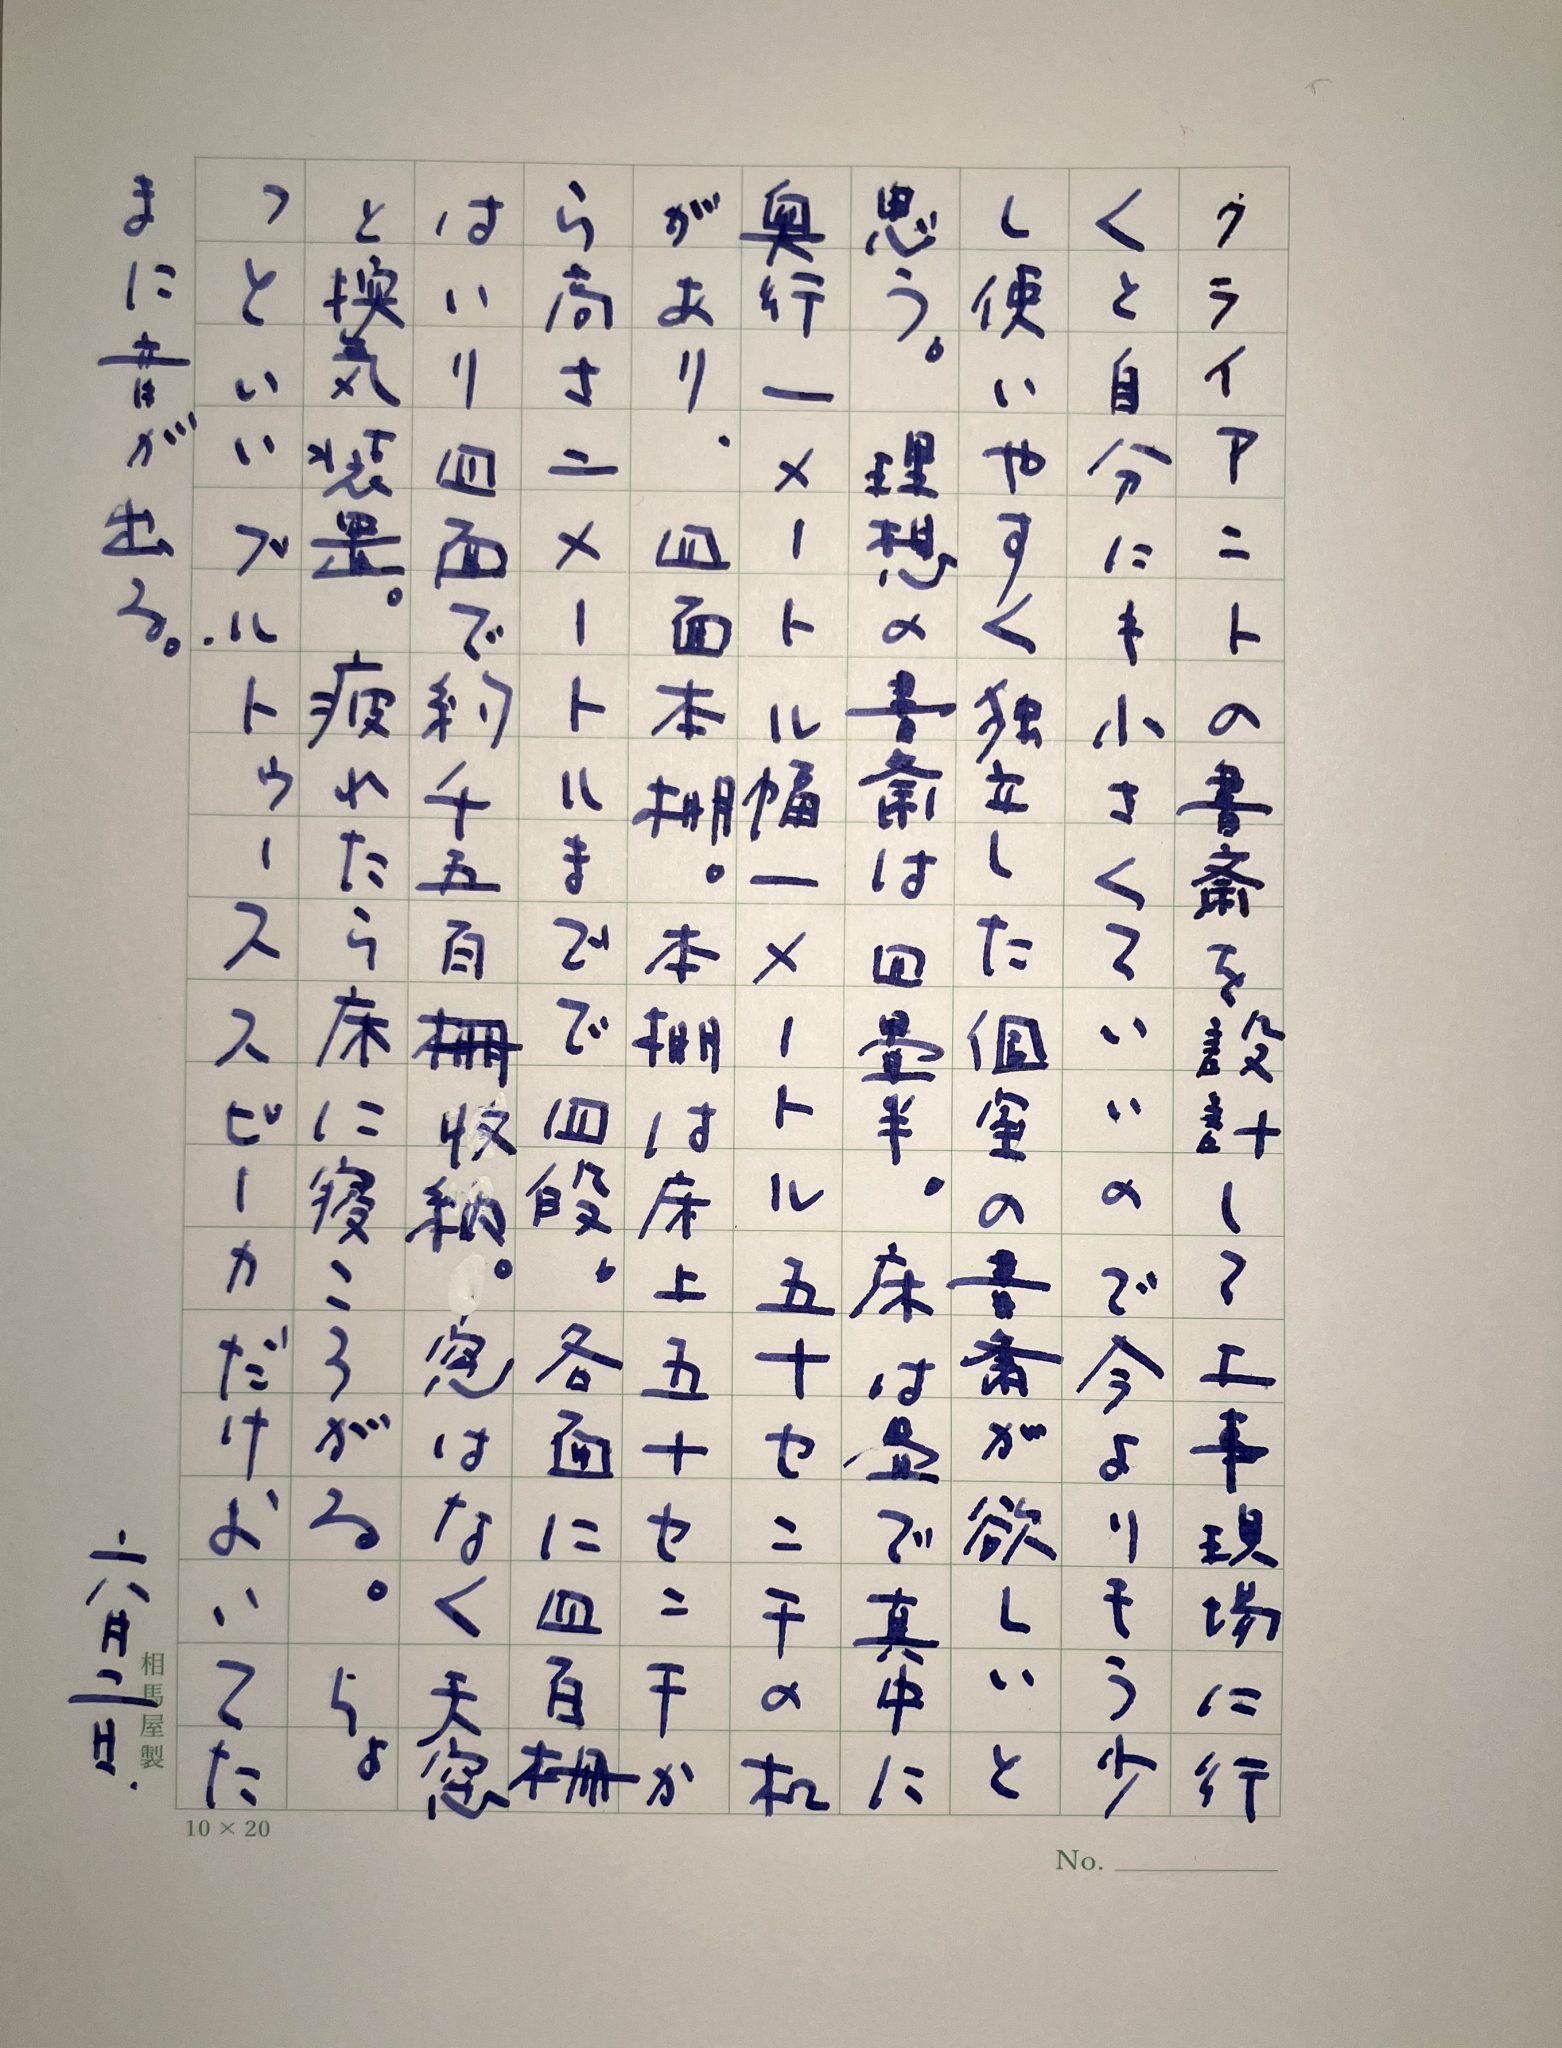 クライアントの書斎を設計して工事現場に行
くと自分にも小さくていいので今よりもう少
し使いやすく独立した個室の書斎が欲しいと
思う。理想の書斎は四畳半。床は畳で真中に
奥行一メートル幅一メートル五十センチの机
があり、四面本棚。本棚は床上五十センチか
ら高さニメートルまでで四段。各面に四百冊
はいり四面で約千五百冊収納。窓はなく天窓
と換気装置。疲れたら床に寝ころがる。ちょ
っといいブルトゥーススピーカだけおいてた
まに音が出る。
六月二日.
相馬屋製
10×20
No.